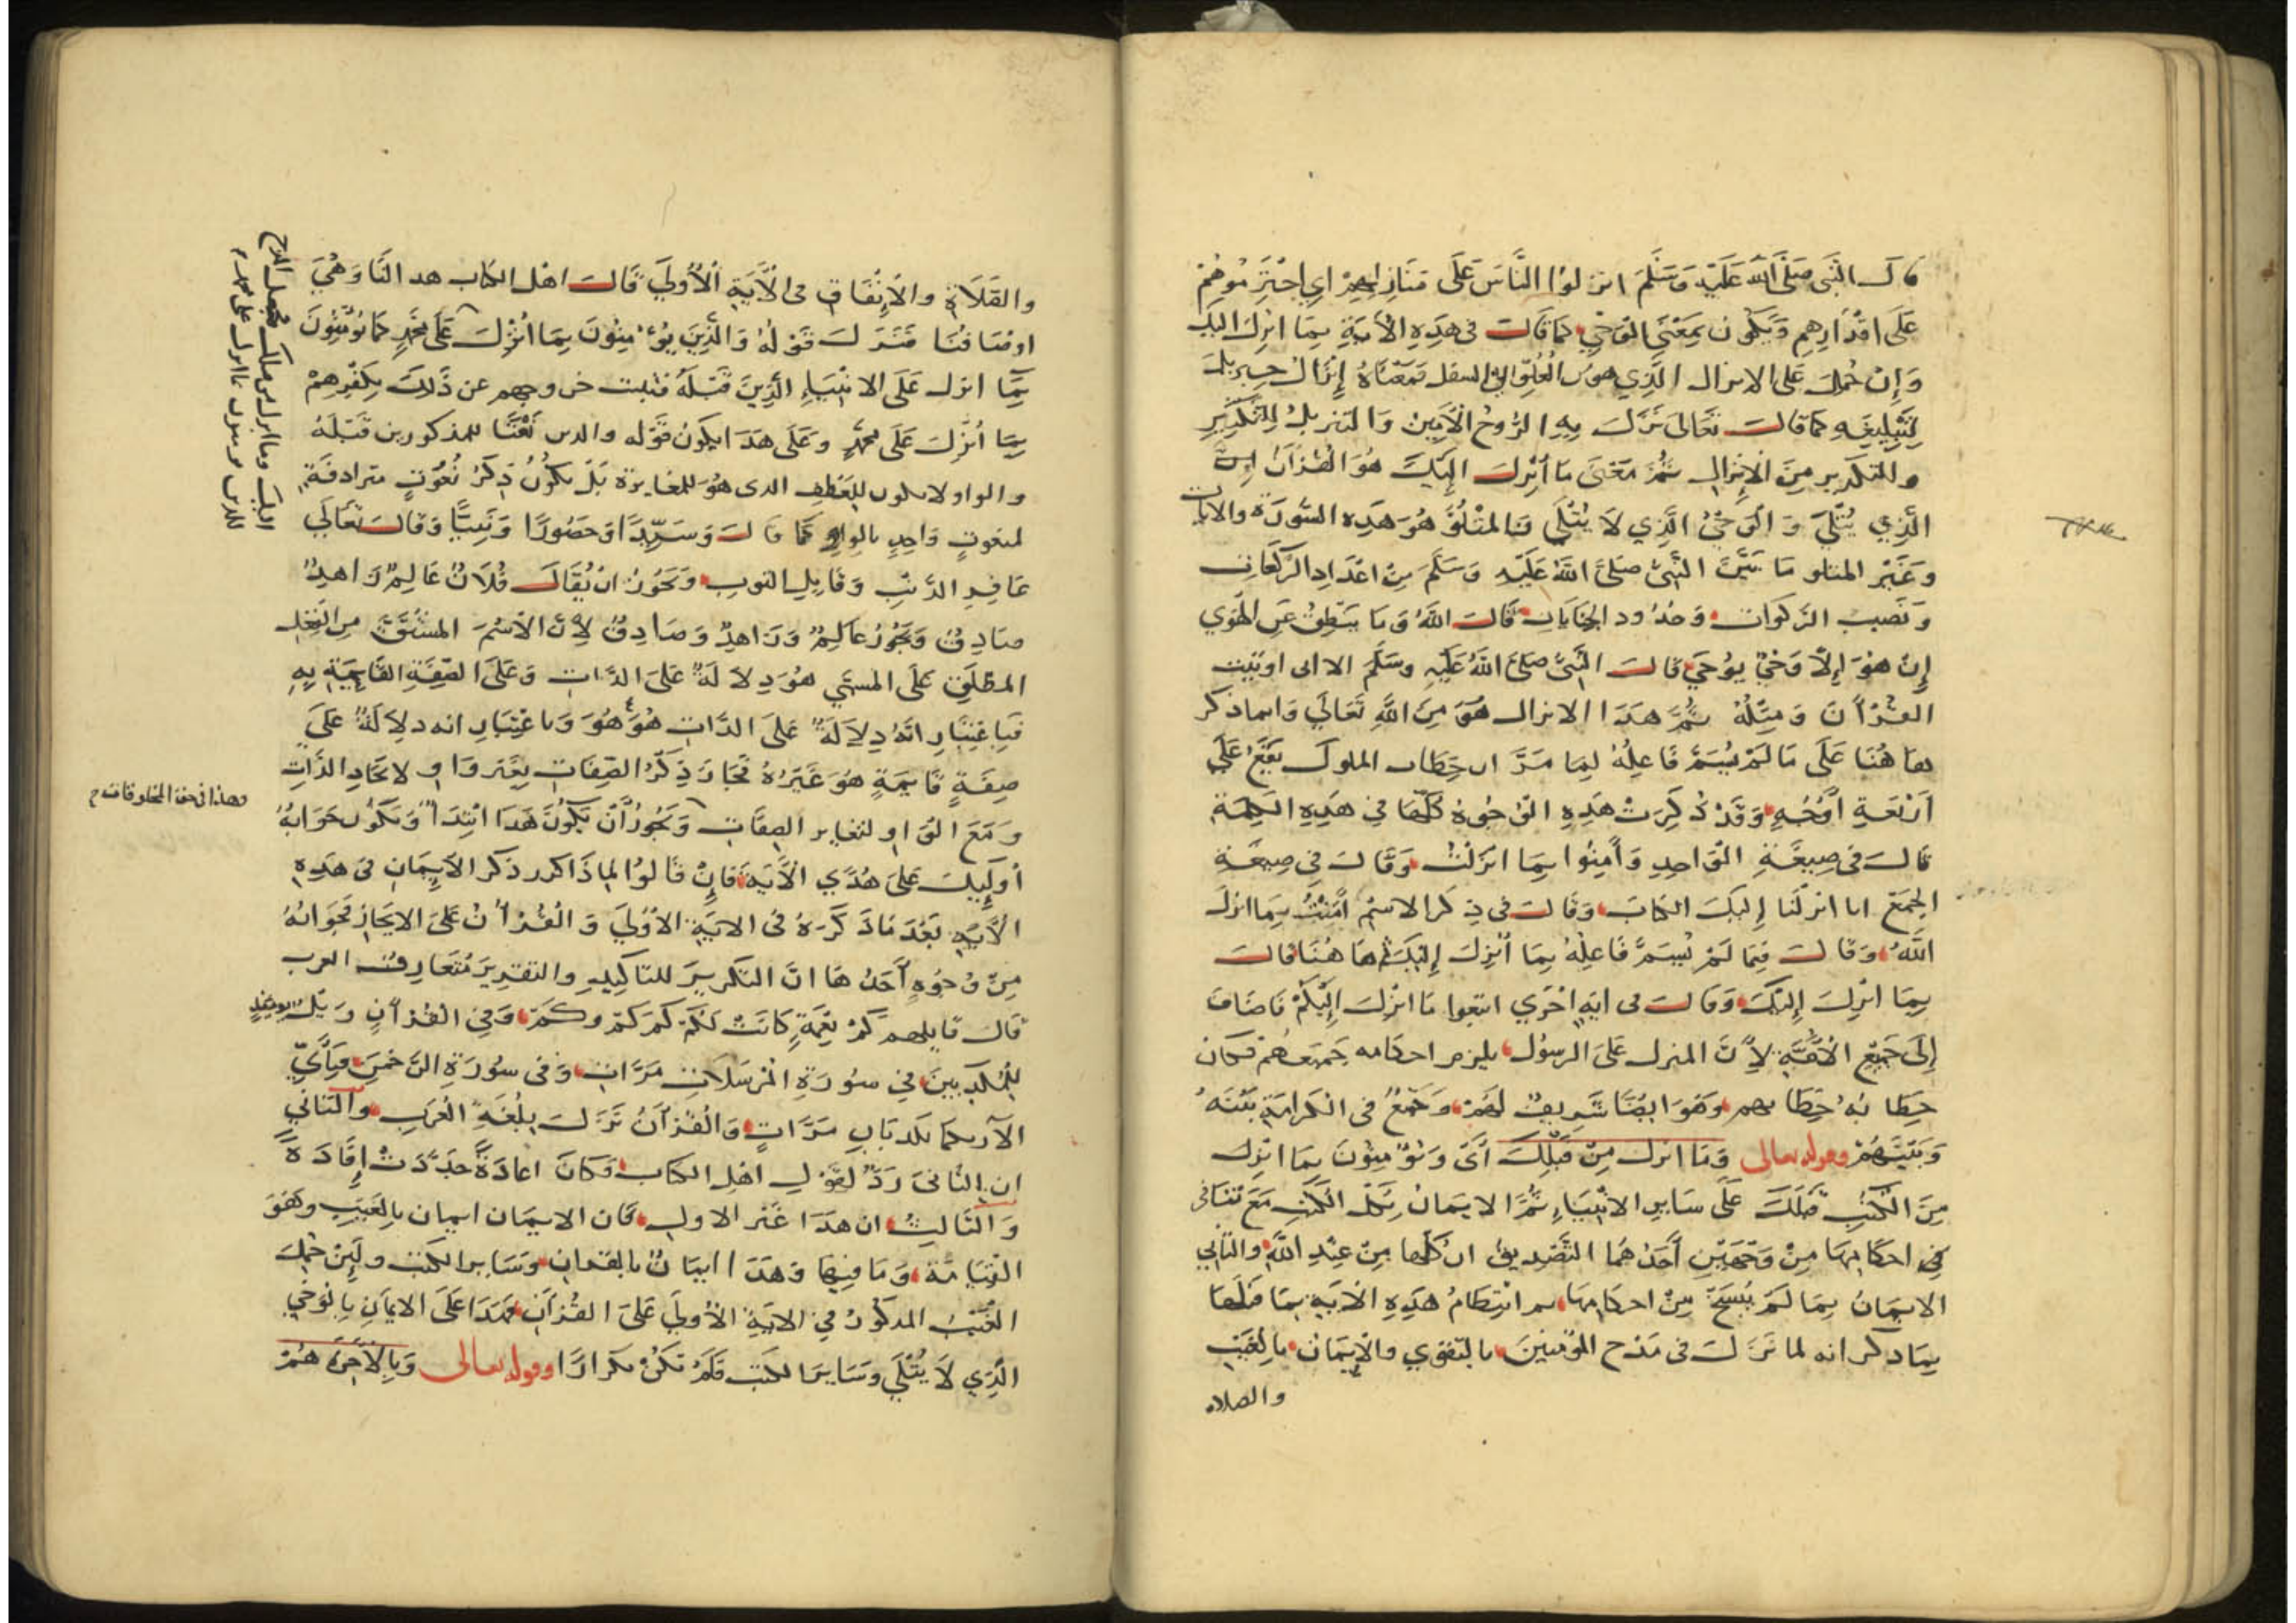 قال النبي صلى الله عليه وسلم انزلوا الناس على منازلهم اي احترموهم
على اقدارهم ويكون بمعنى الوحي كما قال في هذه الآية بما انزل اليك
وإن حمل على الانزال الذي هو من العلو الى السفل فمعناه إنزال جبريل
لتبليغه كما قال تعالى نزل به الروح الأمين والتنزيل للتكثير
والتكرير من الإنزال ثم معنى ما أنزل إليك هو القرآن
الذي يتلى والوحي الذي لا يتلى فالمتلو هو هذه السورة والآيات
وغير المتلو ما بين النبي صلى الله عليه وسلم من اعداد الركعات
ونصب الزكوات وحدود الجنايات قال الله وما ينطق عن الهوى
إن هو إلا وحي يوحى قال النبي صلى الله عليه وسلم الا انى اوتيت
القرآن ومثله ثم هذا الانزال هو من الله تعالى وانما ذكر
هاهنا على ما لم يسم فاعله لما مر ان خطاب الملوك يقع على
أربعة أوجه وقد ذكرت هذه الوجوه كلها في هذه الكلمة
قال في صيغة الواحد وآمنوا بما انزلت وقال في صيغة
الجمع انا انزلنا إليك الكتاب وقال في ذكر الاسم آمنت بما انزل
الله وقال فيما لم يسم فاعله بما أنزل إليك ثم هاهنا قال
بما انزل إليك وقال في آية اخرى اتبعوا ما انزل إليكم فأضاف
إلى جميع الأمة لأن المنزل على الرسول يلزم احكامه جميعهم فكان
خطابه خطابهم وهو ايضا تشريف لهم وجمع في الكرامة بينه
وبينهم وقوله تعالى وما انزل من قبلك أي ويؤمنون بما انزل
من الكتب قبلك على ساير الانبياء ثم الايمان بكل الكتب مع تنافي
في احكامها من وجهين أحدهما التصديق ان كلها من عند الله والثاني
الايمان بما لم ينسخ من احكامها ثم انتظام هذه الآية بما قبلها
بما ذكر انه لما نزل في مدح المؤمنين بالتقوى والإيمان بالغيب
والصلاه
والصلاة والإنفاق في الآية الأولى قال اهل الكتاب هذا لنا وهي
اوصافنا فنزل قوله والذين يؤمنون بما أنزل على محمد كما يؤمنون
بما انزل على الانبياء الذين قبله فثبت خروجهم عن ذلك بكفرهم
بما أنزل على محمد وعلى هذا يكون قوله والذين نعتا للمذكورين قبله
والواو لا يكون للعطف الذي هو للمغايرة بل يكون ذكر نعوت مترادفة
لمنعوت واحد بالواو كما قال وسيدا وحصورا ونبيا وقال تعالى
غافر الذنب وقابل التوب ويجوز ان يقال فلان عالم زاهد
صادق ويجوز عالم وزاهد وصادق لأن الاسم المشتق من الفعل
المطلق على المسمى هو دلالة على الذات وعلى الصفة القائمة به
فباعتبار انه دلالة على الذات هو هو وباعتبار انه دلالة على
صفة قايمة هو غيره فجاز ذكر الصفات بغير واو لاتحاد الذات
ومع الواو لتغاير الصفات ويجوز أن يكون هذا ابتداء ويكون جوابه
أولئك على هدى الآية فإن قالوا لماذا كرر ذكر الإيمان في هذه
الآية بعد ما ذكره في الآية الأولى والقرآن على الإيجاز فجوابه
من وجوه أحدها ان التكرير للتأكيد والتقدير متعارف العرب
قال قايلهم كم نعمة كانت لكم كم كم وكم وفي القرآن ويل يومئذ
للمكذبين في سورة المرسلات مرات وفي سورة الرحمن فبأي
آلاء ربكما تكذبان مرات والقرآن نزل بلغة العرب والثاني
ان الثاني رد لقول اهل الكتاب فكان اعادة جددت إفادة
والثالث ان هذا غير الاول فان الايمان ايمان بالغيب وهو
القيامة وما فيها وهذا ايمان بالقرآن وساير الكتب ولئن حمل
الغيب المذكور في الآية الأولى على القرآن فهذا على الايمان بالوحي
الذي لا يتلى وساير الكتب فلم يكن تكرارا وقوله تعالى وبالآخرة هم
وهذا في حق المخلوقات